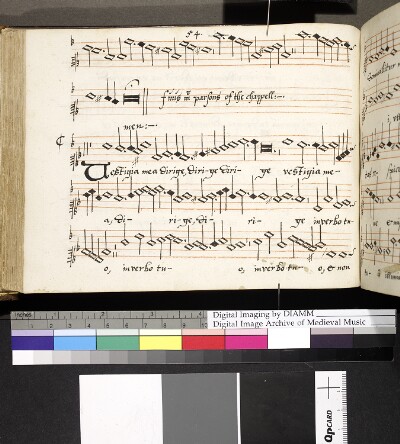 54
finis mr parsons of the chappell:—
men:—
Vestigia mea dirige, diri-ge diri- ge vestigia me-
a, di- ri-ge, di- ri- ge in verbo tu-
o, in verbo tu- o, in verbo tu- o, & non
inches 1 2 3 4
Digital Imaging by DIAMM
Digital Image Archive of Medieval Music
QPCARD